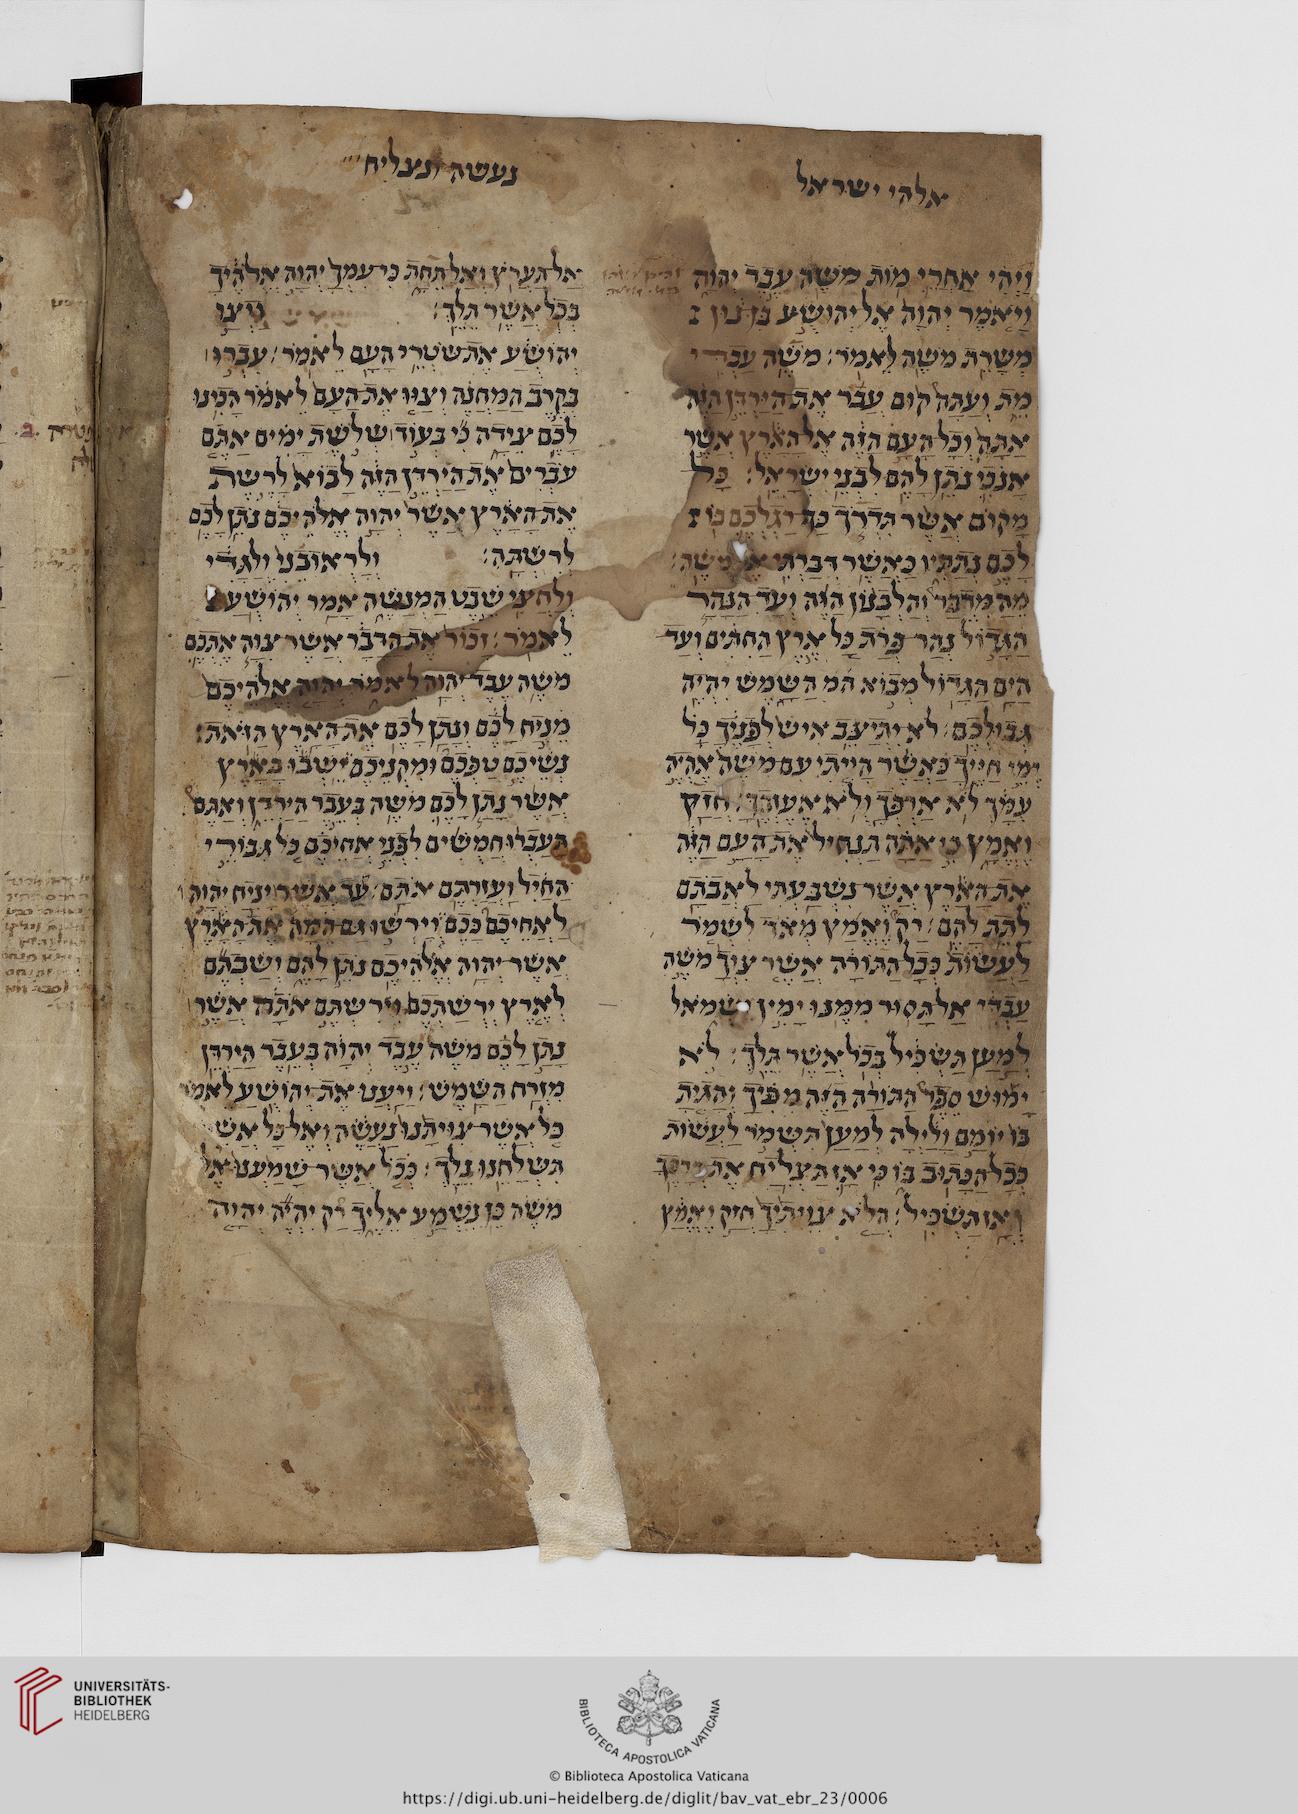 אלהי ישראל
נעשה ונצליח
ויהי אחרי מות משה עבד יהוה
ויאמר יהוה אל יהושע בן נון
משרת משה לאמר׃ משה עבדי
מת ועתה קום עבר את הירדן הזה
אתה וכל העם הזה אל הארץ אשר
אנכי נתן להם לבני ישראל׃ כל
מקום אשר תדרך כף רגלכם בו
לכם נתתיו כאשר דברתי אל משה׃
מהמדבר והלבנון הזה ועד הנהר
הגדול נהר פרת כל ארץ החתים ועד
הים הגדול מבוא השמש יהיה
גבולכם׃ לא יתיצב איש לפניך כל
ימי חייך כאשר הייתי עם משה אהיה
עמך לא ארפך ולא אעזבך׃ חזק
ואמץ כי אתה תנחיל את העם הזה
את הארץ אשר נשבעתי לאבתם
לתת להם׃ רק ואמץ מאד לשמר
לעשות ככל התורה אשר צוך משה
עבדי אל תסור ממנו ימין ושמאל
למען תשכיל בכל אשר תלך׃ לא
ימוש ספר התורה הזה מפיך והגית
בו יומם ולילה למען תשמר לעשות
ככל הכתוב בו כי אז תצליח את דרכך
ואז תשכיל׃ הלא צויתיך חזק ואמץ
אל תערץ ואל תחת כי עמך יהוה אלהיך
בכל אשר תלך׃ ויצו
יהושע את שטרי העם לאמר׃ עברו
בקרב המחנה וצוו את העם לאמר הכינו
לכם צידה כי בעוד שלשת ימים אתם
עברים את הירדן הזה לבוא לרשת
את הארץ אשר יהוה אלהיכם נתן לכם
לרשתה׃ ולראובני ולגדי
ולחצי שבט המנשה אמר יהושע
לאמר׃ זכור את הדבר אשר צוה אתכם
משה עבד יהוה לאמר יהוה אלהיכם
מניח לכם ונתן לכם את הארץ הזאת׃
נשיכם טפכם ומקניכם ישבו בארץ
אשר נתן לכם משה בעבר הירדן ואתם
תעברו חמשים לפני אחיכם כל גבורי
החיל ועזרתם אתם׃ עד אשר יניח יהוה
לאחיכם ככם וירשו גם המה את הארץ
אשר יהוה אלהיכם נתן להם ושבתם
לארץ ירשתכם וירשתם אתה אשר
נתן לכם משה עבד יהוה בעבר הירדן
מזרח השמש׃ ויענו את יהושע לאמר
כל אשר צויתנו נעשה ואל כל אשר
תשלחנו נלך׃ ככל אשר שמענו אל
משה כן נשמע אליך רק יהיה יהוה
UNIVERSITÄTS-
BIBLIOTHEK
HEIDELBERG
BIBLIOTECA APOSTOLICA VATICANA
© Biblioteca Apostolica Vaticana
https://digi.ub.uni-heidelberg.de/diglit/bav_vat_ebr_23/0006